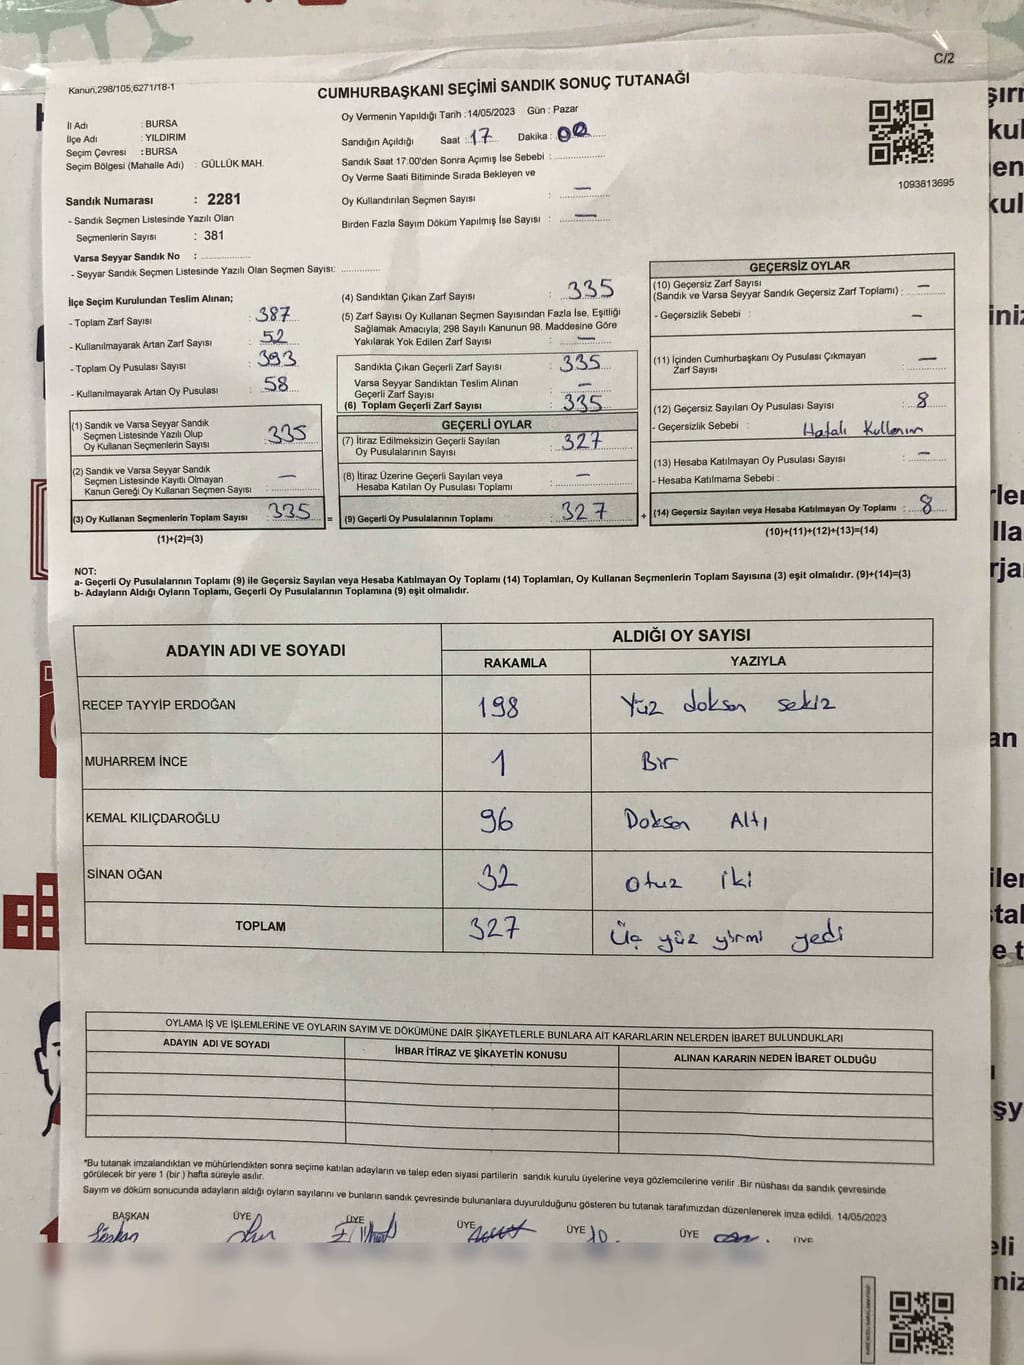 C/2
Kanun,298/105,6271/18-1
CUMHURBAŞKANI SEÇİMİ SANDIK SONUÇ TUTANAĞI
İl Adı : BURSA
İlçe Adı : YILDIRIM
Seçim Çevresi : BURSA
Seçim Bölgesi (Mahalle Adı) : GÜLLÜK MAH.
Oy Vermenin Yapıldığı Tarih :14/05/2023 Gün : Pazar
Sandığın Açıldığı Saat : 17 Dakika : 00
Sandık Saat 17:00'den Sonra Açımış İse Sebebi :
Oy Verme Saati Bitiminde Sırada Bekleyen ve
Oy Kullandırılan Seçmen Sayısı : —
Birden Fazla Sayım Döküm Yapılmış İse Sayısı : —
1093813695
Sandık Numarası : 2281
- Sandık Seçmen Listesinde Yazılı Olan
Seçmenlerin Sayısı : 381
Varsa Seyyar Sandık No :
- Seyyar Sandık Seçmen Listesinde Yazılı Olan Seçmen Sayısı:
İlçe Seçim Kurulundan Teslim Alınan;
- Toplam Zarf Sayısı : 387
- Kullanılmayarak Artan Zarf Sayısı : 52
- Toplam Oy Pusulası Sayısı : 393
- Kullanılmayarak Artan Oy Pusulası : 58
(1) Sandık ve Varsa Seyyar Sandık
Seçmen Listesinde Yazılı Olup
Oy Kullanan Seçmenlerin Sayısı : 335
(2) Sandık ve Varsa Seyyar Sandık
Seçmen Listesinde Kayıtlı Olmayan
Kanun Gereği Oy Kullanan Seçmen Sayısı : —
(3) Oy Kullanan Seçmenlerin Toplam Sayısı : 335
(1)+(2)=(3)
(4) Sandıktan Çıkan Zarf Sayısı : 335
(5) Zarf Sayısı Oy Kullanan Seçmen Sayısından Fazla İse, Eşitliği
Sağlamak Amacıyla; 298 Sayılı Kanunun 98. Maddesine Göre
Yakılarak Yok Edilen Zarf Sayısı : —
Sandıkta Çıkan Geçerli Zarf Sayısı : 335
Varsa Seyyar Sandıktan Teslim Alınan
Geçerli Zarf Sayısı : —
(6) Toplam Geçerli Zarf Sayısı : 335
GEÇERLİ OYLAR
(7) İtiraz Edilmeksizin Geçerli Sayılan
Oy Pusulalarının Sayısı : 327
(8) İtiraz Üzerine Geçerli Sayılan veya
Hesaba Katılan Oy Pusulası Toplamı : —
= (9) Geçerli Oy Pusulalarının Toplamı : 327
GEÇERSİZ OYLAR
(10) Geçersiz Zarf Sayısı
(Sandık ve Varsa Seyyar Sandık Geçersiz Zarf Toplamı) : —
- Geçersizlik Sebebi : —
(11) İçinden Cumhurbaşkanı Oy Pusulası Çıkmayan
Zarf Sayısı : —
(12) Geçersiz Sayılan Oy Pusulası Sayısı : 8
- Geçersizlik Sebebi : Hatalı Kullanım
(13) Hesaba Katılmayan Oy Pusulası Sayısı : —
- Hesaba Katılmama Sebebi :
+ (14) Geçersiz Sayılan veya Hesaba Katılmayan Oy Toplamı : 8
(10)+(11)+(12)+(13)=(14)
NOT:
a- Geçerli Oy Pusulalarının Toplamı (9) ile Geçersiz Sayılan veya Hesaba Katılmayan Oy Toplamı (14) Toplamları, Oy Kullanan Seçmenlerin Toplam Sayısına (3) eşit olmalıdır. (9)+(14)=(3)
b- Adayların Aldığı Oyların Toplamı, Geçerli Oy Pusulalarının Toplamına (9) eşit olmalıdır.
ADAYIN ADI VE SOYADI
ALDIĞI OY SAYISI
RAKAMLA YAZIYLA
RECEP TAYYİP ERDOĞAN 198 Yüz doksan sekiz
MUHARREM İNCE 1 Bir
KEMAL KILIÇDAROĞLU 96 Doksan Altı
SİNAN OĞAN 32 otuz iki
TOPLAM 327 Üç yüz yirmi yedi
OYLAMA İŞ VE İŞLEMLERİNE VE OYLARIN SAYIM VE DÖKÜMÜNE DAİR ŞİKAYETLERLE BUNLARA AİT KARARLARIN NELERDEN İBARET BULUNDUKLARI
ADAYIN ADI VE SOYADI İHBAR İTİRAZ VE ŞİKAYETİN KONUSU ALINAN KARARIN NEDEN İBARET OLDUĞU
*Bu tutanak imzalandıktan ve mühürlendikten sonra seçime katılan adayların ve talep eden siyasi partilerin sandık kurulu üyelerine veya gözlemcilerine verilir .Bir nüshası da sandık çevresinde
görülecek bir yere 1 (bir) hafta süreyle asılır.
Sayım ve döküm sonucunda adayların aldığı oyların sayılarını ve bunların sandık çevresinde bulunanlara duyurulduğunu gösteren bu tutanak tarafımızdan düzenlenerek imza edildi. 14/05/2023
BAŞKAN ÜYE ÜYE ÜYE ÜYE ÜYE ÜYE